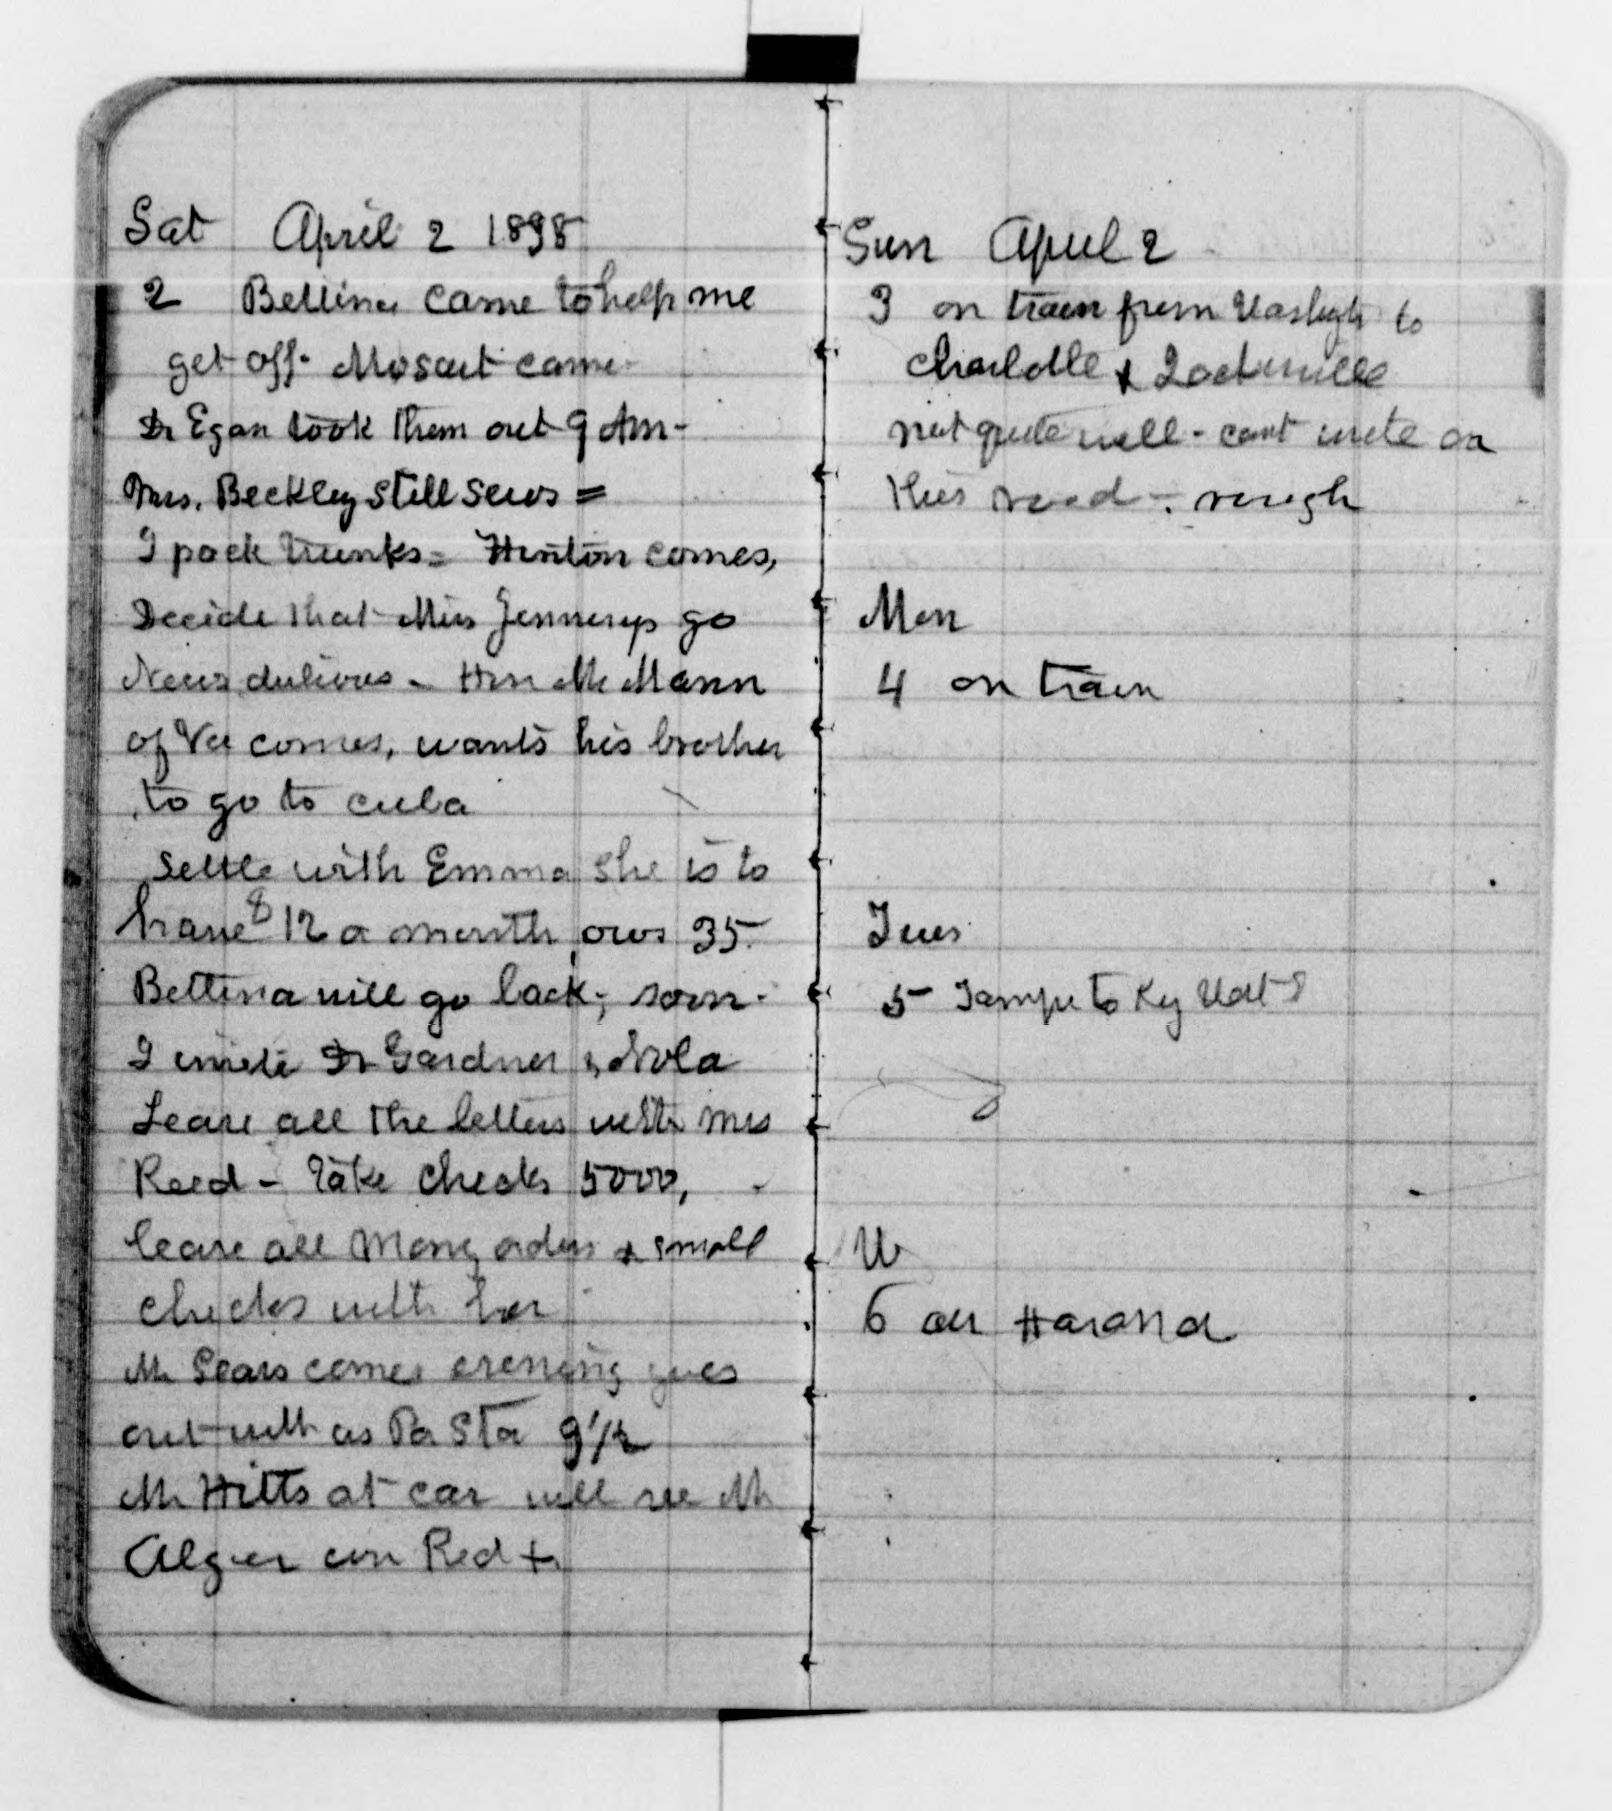 Sat April 2 1898
2 Bettina came to help me
get off. Mosart came
Dr Egan took them out 9 Am -
Mrs. Beckley still sews =
I pack trunks = Hinton comes,
Decide that Miss Jennings go
News - Hon Mr Mann
of Va comes, wants his brother
to go to cuba
Settle with Emma she is to
have 12 a month, ows 35.
Bettina will go back, soon.
I write Dr Gardner & Nola
Leave all the letters with Mrs
Reed - take checks 5000,
leave all Mony orders & small
checks with her
Mr Sears comes evening goes
out with us Pa Sta 9 1/2
Mr Hitts at car will see Mr
Alger con Red +
Sun April 2
3 on train from Washgtn to
Charlotte &
not quite well - cant write on
this road - rough
Mon
4 on train
Tues
5 Tampa to Ky West
W
6 arr Havana